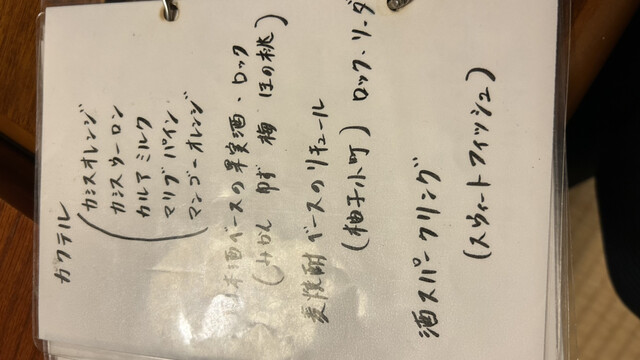 カクテル
カシスオレンジ
カシスウーロン
カルアミルク
マリブパイン
マンゴーオレンジ
日本酒ベースの果実酒・ロック
(みかん ゆず 梅 ほの桃)
麦焼酎ベースのリキュール
(柚子小町) ロック、ソーダ
酒スパークリング
(スウィートフィッシュ)